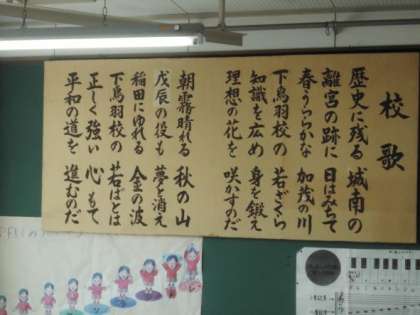 校歌
歴史に残る 城南の
離宮の跡に 日はみちて
春うららかな 加茂の川
下鳥羽校の 若ざくら
知識を広め 身を鍛え
理想の花を 咲かすのだ
朝霧晴れる 秋の山
戊辰の役も 夢と消え
稲田にゆれる 金の波
下鳥羽校の 若ばとは
正しく強い 心もて
平和の道を 進むのだ